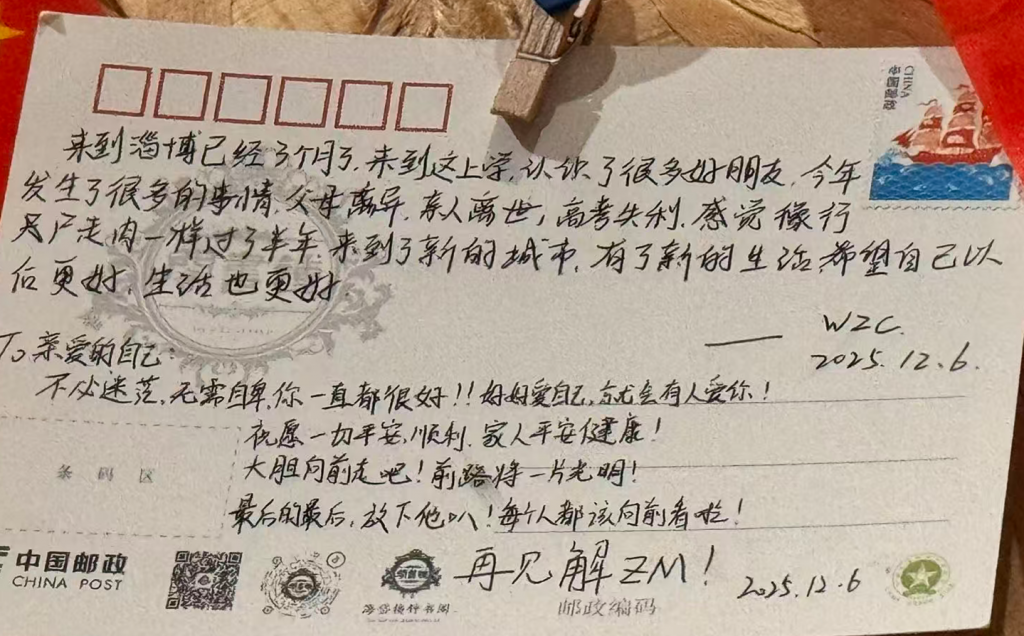 CHINA
中国邮政
来到淄博已经3个月了,来到这上学,认识了很多好朋友,今年
发生了很多的事情,父母离异,亲人离世,高考失利,感觉像行
尸走肉一样过了半年 来到了新的城市,有了新的生活,希望自己以
后更好,生活也更好
—— WZC.
2025.12.6.
To 亲爱的自己:
不必迷茫,无需自卑,你一直都很好!!好好爱自己,就会有人爱你!
祝愿一切平安,顺利,家人平安健康!
大胆向前走吧!前路将一片光明!
最后的最后,放下他叭!每个人都该向前看啦!
再见解ZM!
2025.12.6
条码区
中国邮政
CHINA POST
海岱楼钟书阁
邮政编码